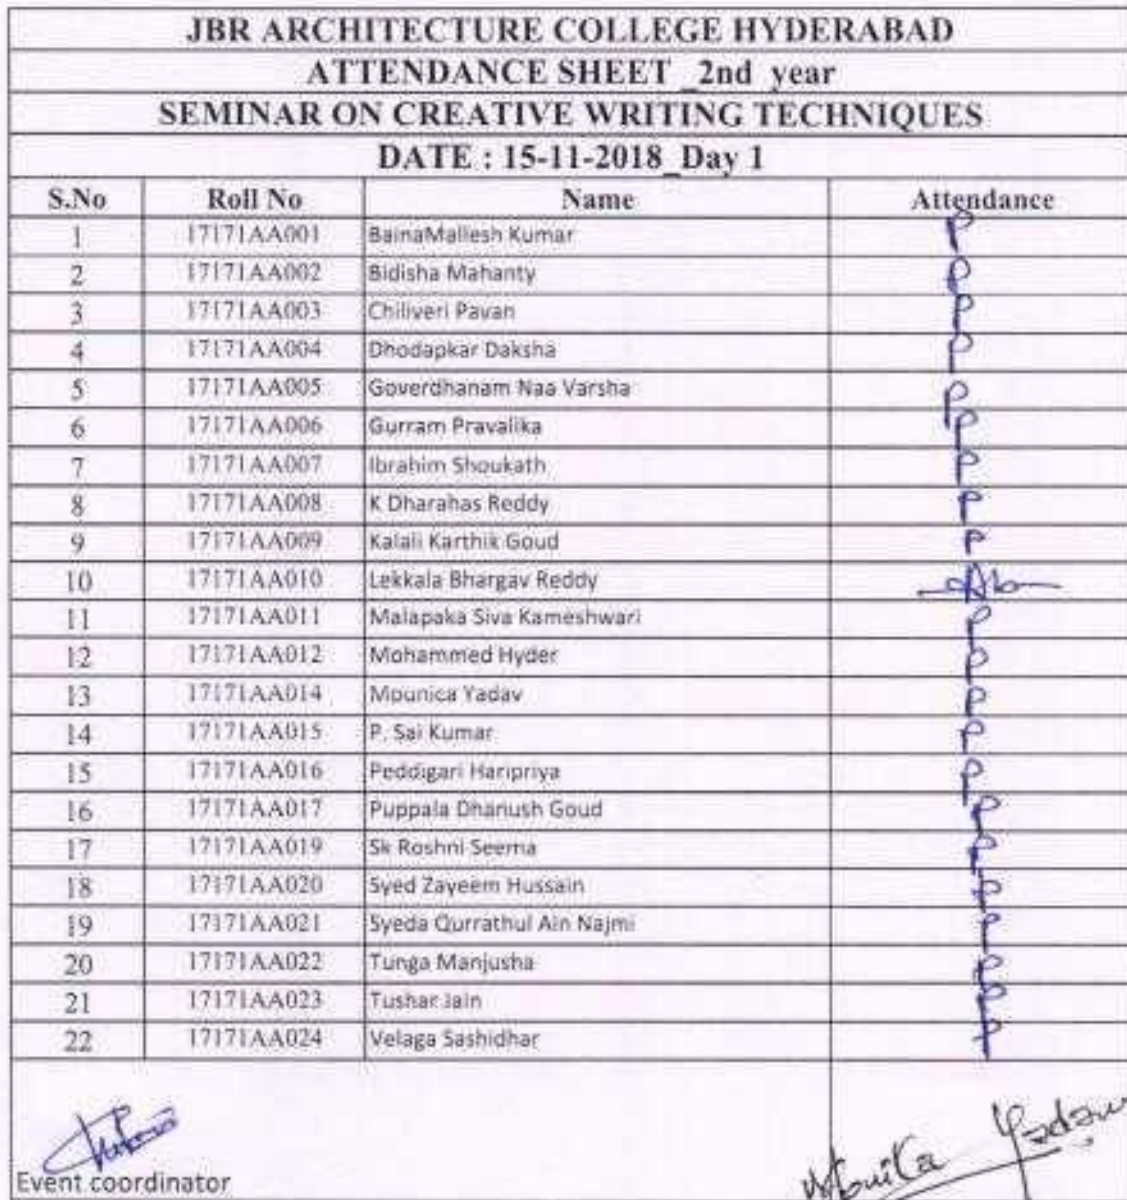 JBR ARCHITECTURE COLLEGE HYDERABAD
ATTENDANCE SHEET _2nd year
SEMINAR ON CREATIVE WRITING TECHNIQUES
DATE : 15-11-2018_Day 1
S.No Roll No Name Attendance
1 17171AA001 BainaMallesh Kumar P
2 17171AA002 Bidisha Mahanty P
3 17171AA003 Chiliveri Pavan P
4 17171AA004 Dhodapkar Daksha P
5 17171AA005 Goverdhanam Naa Varsha P
6 17171AA006 Gurram Pravalika P
7 17171AA007 Ibrahim Shoukath P
8 17171AA008 K Dharahas Reddy P
9 17171AA009 Kalali Karthik Goud P
10 17171AA010 Lekkala Bhargav Reddy Ab
11 17171AA011 Malapaka Siva Kameshwari P
12 17171AA012 Mohammed Hyder P
13 17171AA014 Mounica Yadav P
14 17171AA015 P. Sai Kumar P
15 17171AA016 Peddigari Haripriya P
16 17171AA017 Puppala Dhanush Goud P
17 17171AA019 Sk Roshni Seema P
18 17171AA020 Syed Zayeem Hussain P
19 17171AA021 Syeda Qurrathul Ain Najmi P
20 17171AA022 Tunga Manjusha P
21 17171AA023 Tushar Jain P
22 17171AA024 Velaga Sashidhar P
Monika Yadav
Event coordinator